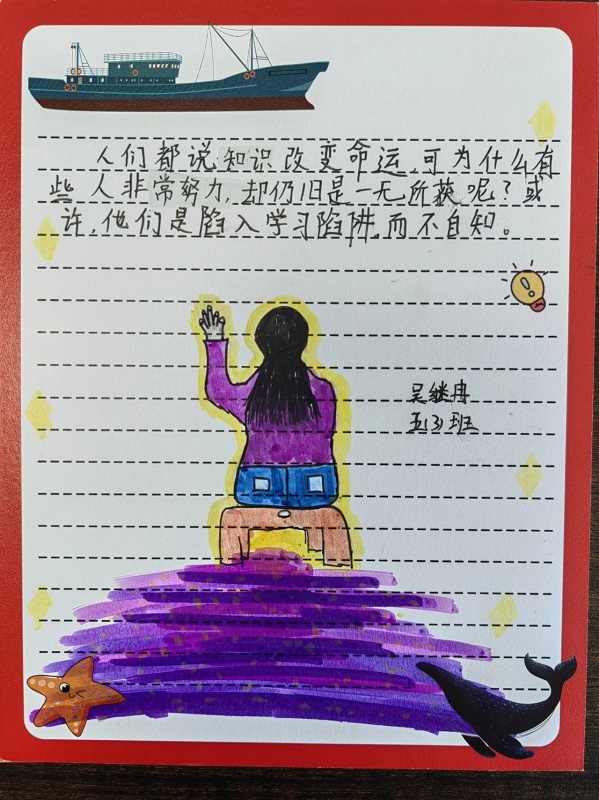 人们都说知识改变命运,可为什么有
些人非常努力,却仍旧是一无所获呢?或
许,他们是陷入学习陷阱,而不自知。
吴继冉
五(3)班